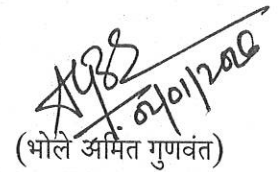 02/01/2026
(भोले अमित गुणवंत)